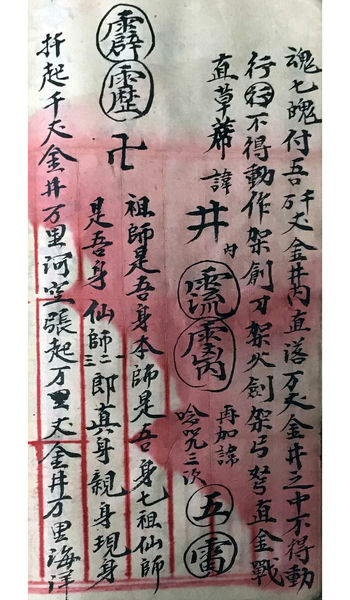 魂七魄付吾千丈万丈金井内直落万丈金井之中不得動
行不得動作架創刀架火劍架弓弩直金戰
直草蓆 諱井内 再加諱 五雷
喰咒三次
霹靂 卍 祖師是吾身本師是吾身七祖仙師
是吾身仙師一二三即真身親身現身
扦起千丈金井万里河空張起万里丈金井万里海洋